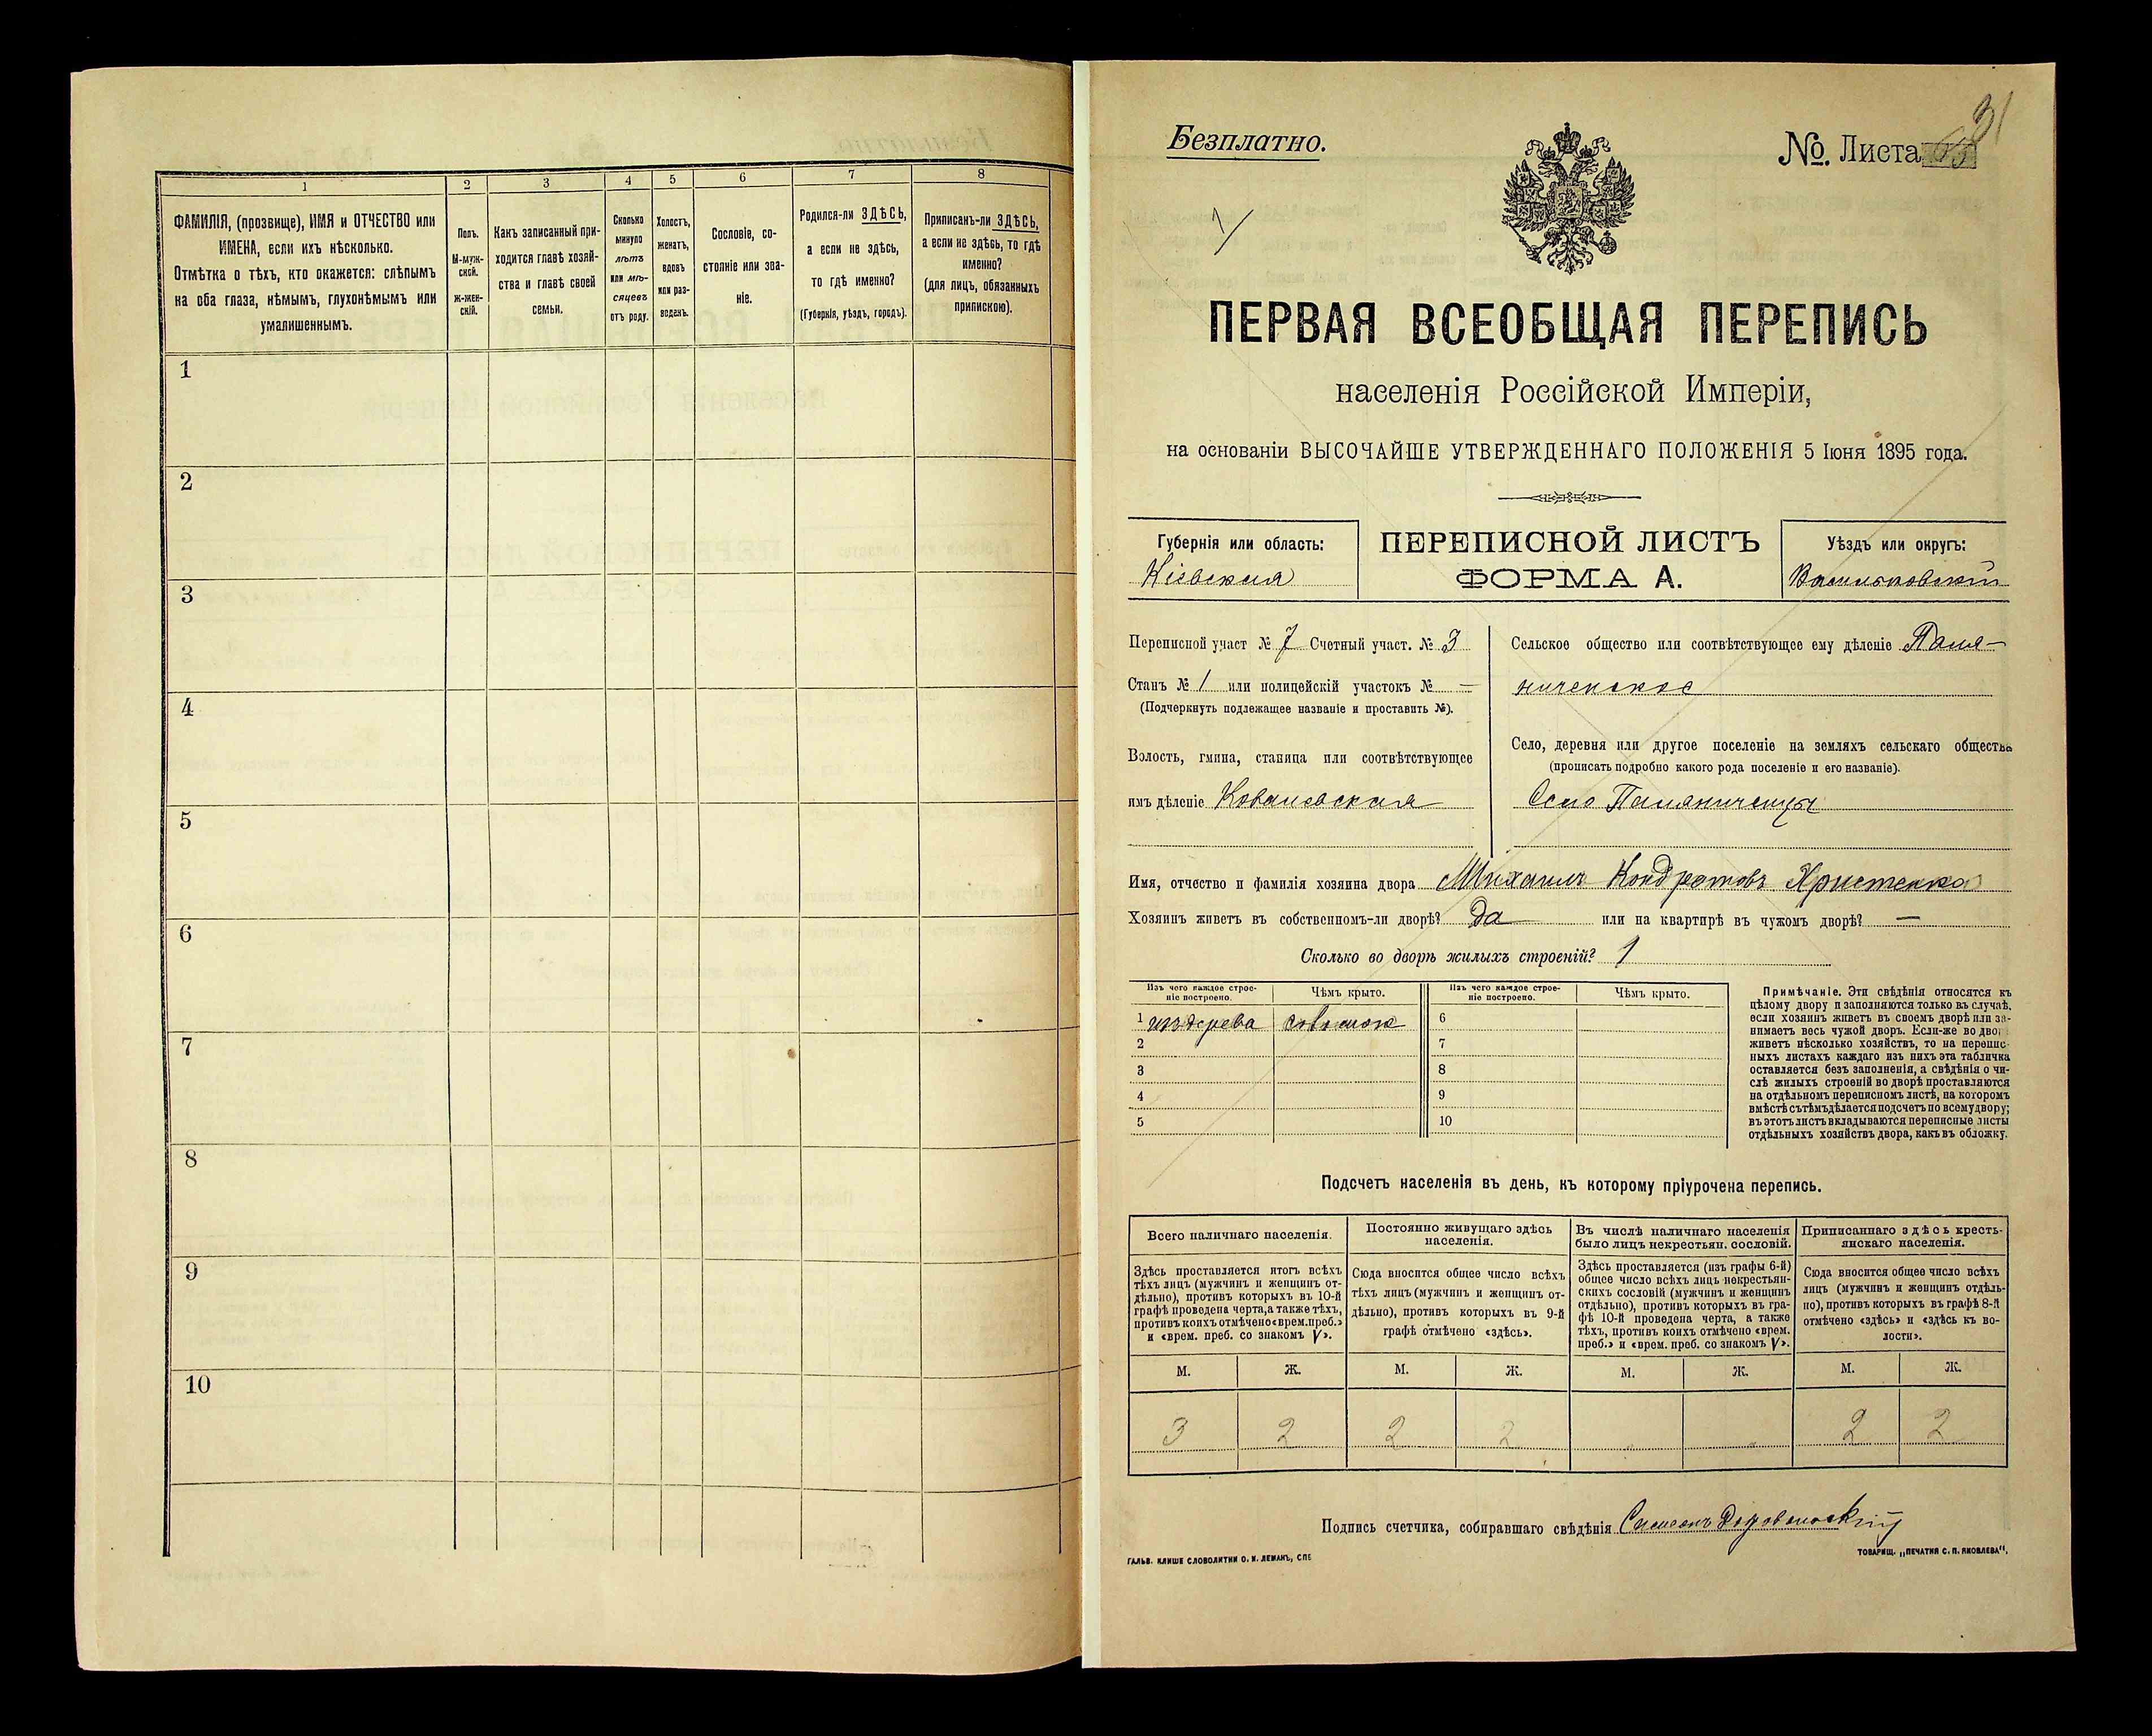 1
2
3
4
5
6
7
8
ФАМИЛІЯ, (прозвище), ИМЯ и ОТЧЕСТВО или
ИМЕНА, если ихъ нѣсколько.
Отмѣтка о тѣхъ, кто окажется: слѣпымъ
на оба глаза, нѣмымъ, глухонѣмымъ или
умалишеннымъ.
Полъ.
М-муж-
ской.
ж-жен-
скій.
Какъ записанный при-
ходится главѣ хозяй-
ства и главѣ своей
семьи.
Сколько
минуло
лѣтъ
или мѣ-
сяцевъ
отъ роду.
Холостъ,
женатъ,
вдовъ
или раз-
веденъ.
Сословіе, со-
стояніе или зва-
ніе.
Родился-ли ЗДѢСЬ,
а если не здѣсь,
то гдѣ именно?
(Губернія, уѣздъ, городъ).
Приписанъ-ли ЗДѢСЬ,
а если не здѣсь, то гдѣ
именно?
(для лицъ, обязанныхъ
припискою).
1
2
3
4
5
6
7
8
9
10
31
Безплатно.
№. Листа
ПЕРВАЯ ВСЕОБЩАЯ ПЕРЕПИСЬ
населенія Россійской Имперіи,
на основаніи ВЫСОЧАЙШЕ УТВЕРЖДЕННАГО ПОЛОЖЕНІЯ 5 Іюня 1895 года.
Губернія или область:
Кіевская
ПЕРЕПИСНОЙ ЛИСТЪ
ФОРМА А.
Уѣздъ или округъ:
Васильковскій
Переписной участ № 7 Счетный участ. № 3
Станъ № 1 или полицейскій участокъ № —
(Подчеркнуть подлежащее названіе и проставить №).
Волость, гмина, станица или соотвѣтствующее
имъ дѣленіе Ковалевская
Сельское общество или соотвѣтствующее ему дѣленіе Паля-
ниченское
Село, деревня или другое поселеніе на земляхъ сельскаго общества
(прописать подробно какого рода поселеніе и его названіе).
Село Паляниченцы
Имя, отчество и фамилія хозяина двора Михаилъ Кондратовъ Христенко
Хозяинъ живетъ въ собственномъ-ли дворѣ? да или на квартирѣ въ чужомъ дворѣ? —
Сколько во дворѣ жилыхъ строеній? 1
Изъ чего каждое строе-
ніе построено.
Чѣмъ крыто.
Изъ чего каждое строе-
ніе построено.
Чѣмъ крыто.
1 изъ дерева соломою
2
3
4
5
6
7
8
9
10
Примѣчаніе. Эти свѣдѣнія относятся къ
цѣлому двору и заполняются только въ случаѣ,
если хозяинъ живетъ въ своемъ дворѣ или за-
нимаетъ весь чужой дворъ. Если-же во дворѣ
живетъ нѣсколько хозяйствъ, то на перепис-
ныхъ листахъ каждаго изъ нихъ эта табличка
оставляется безъ заполненія, а свѣдѣнія о чи-
слѣ жилыхъ строеній во дворѣ проставляются
на отдѣльномъ переписномъ листѣ, на которомъ
вмѣстѣ съ тѣмъ дѣлается подсчетъ по всему двору;
въ этотъ листъ вкладываются переписные листы
отдѣльныхъ хозяйствъ двора, какъ въ обложку.
Подсчетъ населенія въ день, къ которому пріурочена перепись.
Всего наличнаго населенія.
Постоянно живущаго здѣсь
населенія.
Въ числѣ наличнаго населенія
было лицъ некрестьян. сословій.
Приписаннаго здѣсь кресть-
янскаго населенія.
Здѣсь проставляется итогъ всѣхъ
тѣхъ лицъ (мужчинъ и женщинъ от-
дѣльно), противъ которыхъ въ 10-й
графѣ проведена черта, а также тѣхъ,
противъ коихъ отмѣчено «врем. преб.»
и «врем. преб. со знакомъ V».
Сюда вносится общее число всѣхъ
тѣхъ лицъ (мужчинъ и женщинъ от-
дѣльно), противъ которыхъ въ 9-й
графѣ отмѣчено «здѣсь».
Здѣсь проставляется (изъ графы 6-й)
общее число всѣхъ лицъ некрестьян-
скихъ сословій (мужчинъ и женщинъ
отдѣльно), противъ которыхъ въ гра-
фѣ 10-й проведена черта, а также
тѣхъ, противъ коихъ отмѣчено «врем.
преб.» и «врем. преб. со знакомъ V».
Сюда вносится общее число всѣхъ
лицъ (мужчинъ и женщинъ отдѣль-
но), противъ которыхъ въ графѣ 8-й
отмѣчено «здѣсь» и «здѣсь къ во-
лости».
М. Ж. М. Ж. М. Ж. М. Ж.
3 2 2 2 „ „ 2 2
Подпись счетчика, собиравшаго свѣдѣнія Симеонъ
ГАЛЬВ. КЛИШЕ СЛОВОЛИТНИ О. И. ЛЕМАНЪ, СПБ
ТОВАРИЩ. „ПЕЧАТНЯ С. П. ЯКОВЛЕВА".